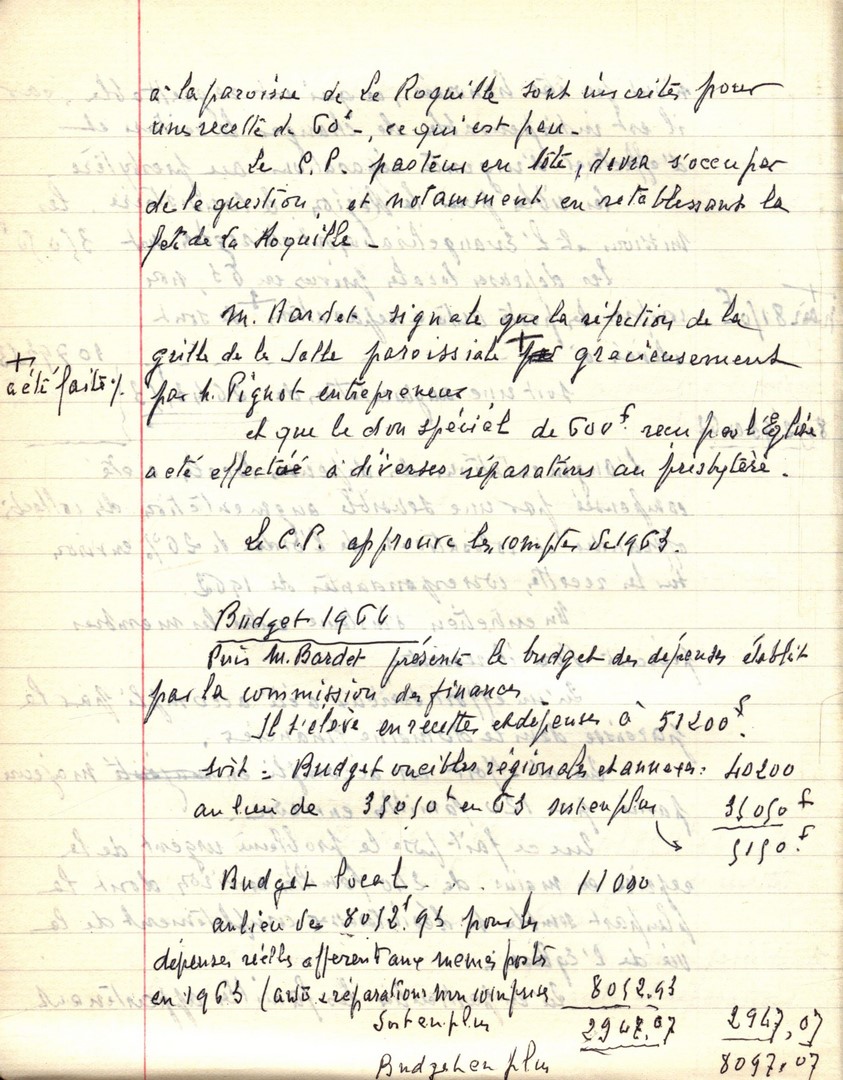 à la paroisse de Le Roquille sont inscrites pour
une recette de 60f -, ce qui est peu -
Le C.P. pasteur en tête, devra s'occuper
de le question, et notamment en retablissant la
fête de La Roquille -
M. Bardet signale que la réfection de la
grille de la Salle paroissiale + par gracieusement
+
a été faite /.
par M. Pignot entrepreneur
et que le don spécial de 600f. recu par l'Eglise
a été effectué à diverses réparations au presbytère.
Le C.P. approuve les comptes de 1963.
Budget 1964
Puis M. Bardet présente le budget des dépenses établit
par la commission des finances
Il s'élève en recettes et dépenses à 51200f.
soit = Budget régionales et annexes : 40200
au lieu de 35050f en 63 soit en plus 35050f
5150.f
Budget local . . . 11000
au lieu de 8052f.93 pour les
dépenses réelles afferent aux memes postes
en 1963 (auto & réparations non comprises 8052.93
Soit en plus 2947.07 2947,07
Budget en plus 8097.07